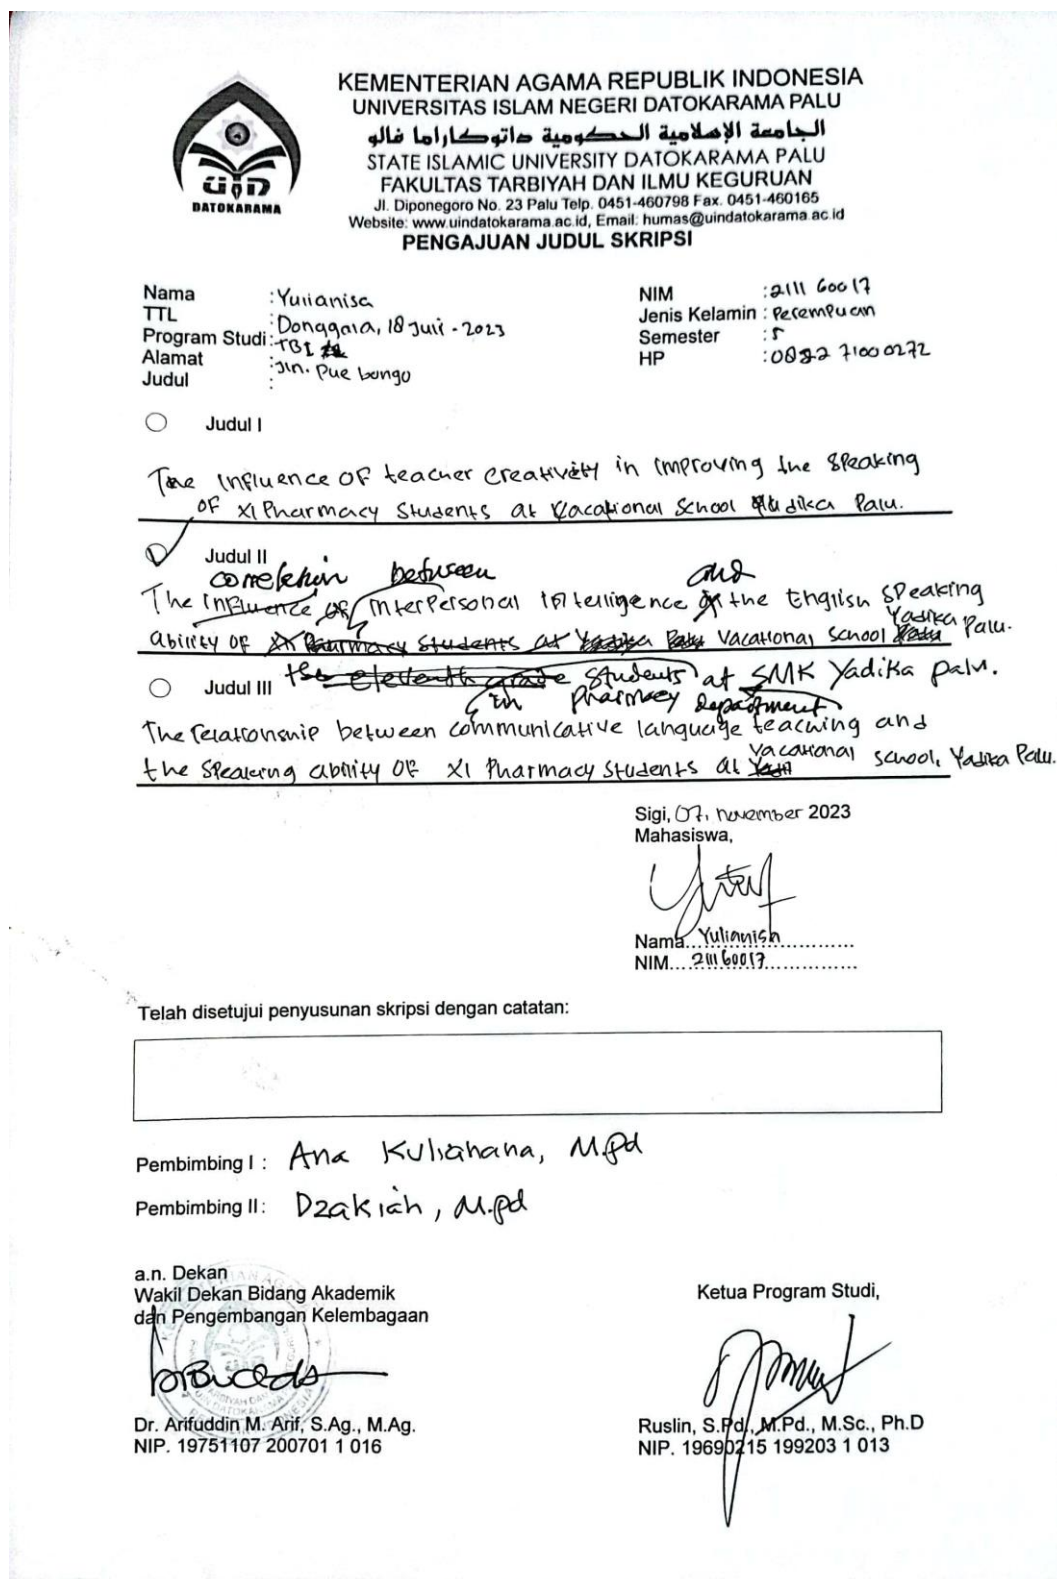 UIN
DATOKARAMA
KEMENTERIAN AGAMA REPUBLIK INDONESIA
UNIVERSITAS ISLAM NEGERI DATOKARAMA PALU
الجامعة الإسلامية الحكومية داتوكاراما فالو
STATE ISLAMIC UNIVERSITY DATOKARAMA PALU
FAKULTAS TARBIYAH DAN ILMU KEGURUAN
Jl. Diponegoro No. 23 Palu Telp. 0451-460798 Fax. 0451-460165
Website: www.uindatokarama.ac.id, Email: humas@uindatokarama.ac.id
PENGAJUAN JUDUL SKRIPSI
Nama : Yulianisa
TTL : Donggala, 18 Juli - 2023
Program Studi : TBI
Alamat : Jln. Pue bongo
Judul :
NIM : 2111 60017
Jenis Kelamin : Perempuan
Semester : 5
HP : 0822 71000272
Judul I
The Influence OF teacher creativity in improving the Speaking
OF XI Pharmacy Students at Vacational School Yadika Palu.
Judul II
correlation between and
The Influence of Interpersonal Intelligence the English Speaking
ability OF XI Pharmacy Students at Yadika Palu Vacational School Yadika Palu.
the eleventh grade students at SMK Yadika palu.
in pharmacy department
Judul III
The relationship between communicative language teaching and
the speaking ability OF XI Pharmacy Students at Vacational School, Yadika Palu.
Sigi, 07, november 2023
Mahasiswa,
Nama... Yulianisa
NIM.... 211160017
Telah disetujui penyusunan skripsi dengan catatan:
Pembimbing I : Ana Kuliahana, M.pd
Pembimbing II : Dzakiah, M.pd
a.n. Dekan
Wakil Dekan Bidang Akademik
dan Pengembangan Kelembagaan
Dr. Arifuddin M. Arif, S.Ag., M.Ag.
NIP. 19751107 200701 1 016
Ketua Program Studi,
Ruslin, S.Pd., M.Pd., M.Sc., Ph.D
NIP. 19690215 199203 1 013